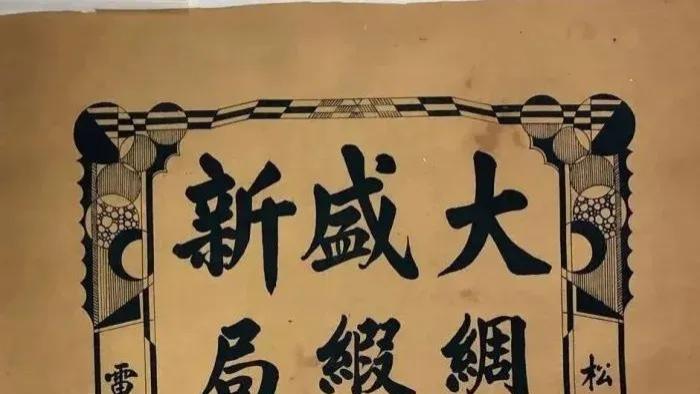 大盛新
綢緞局
松